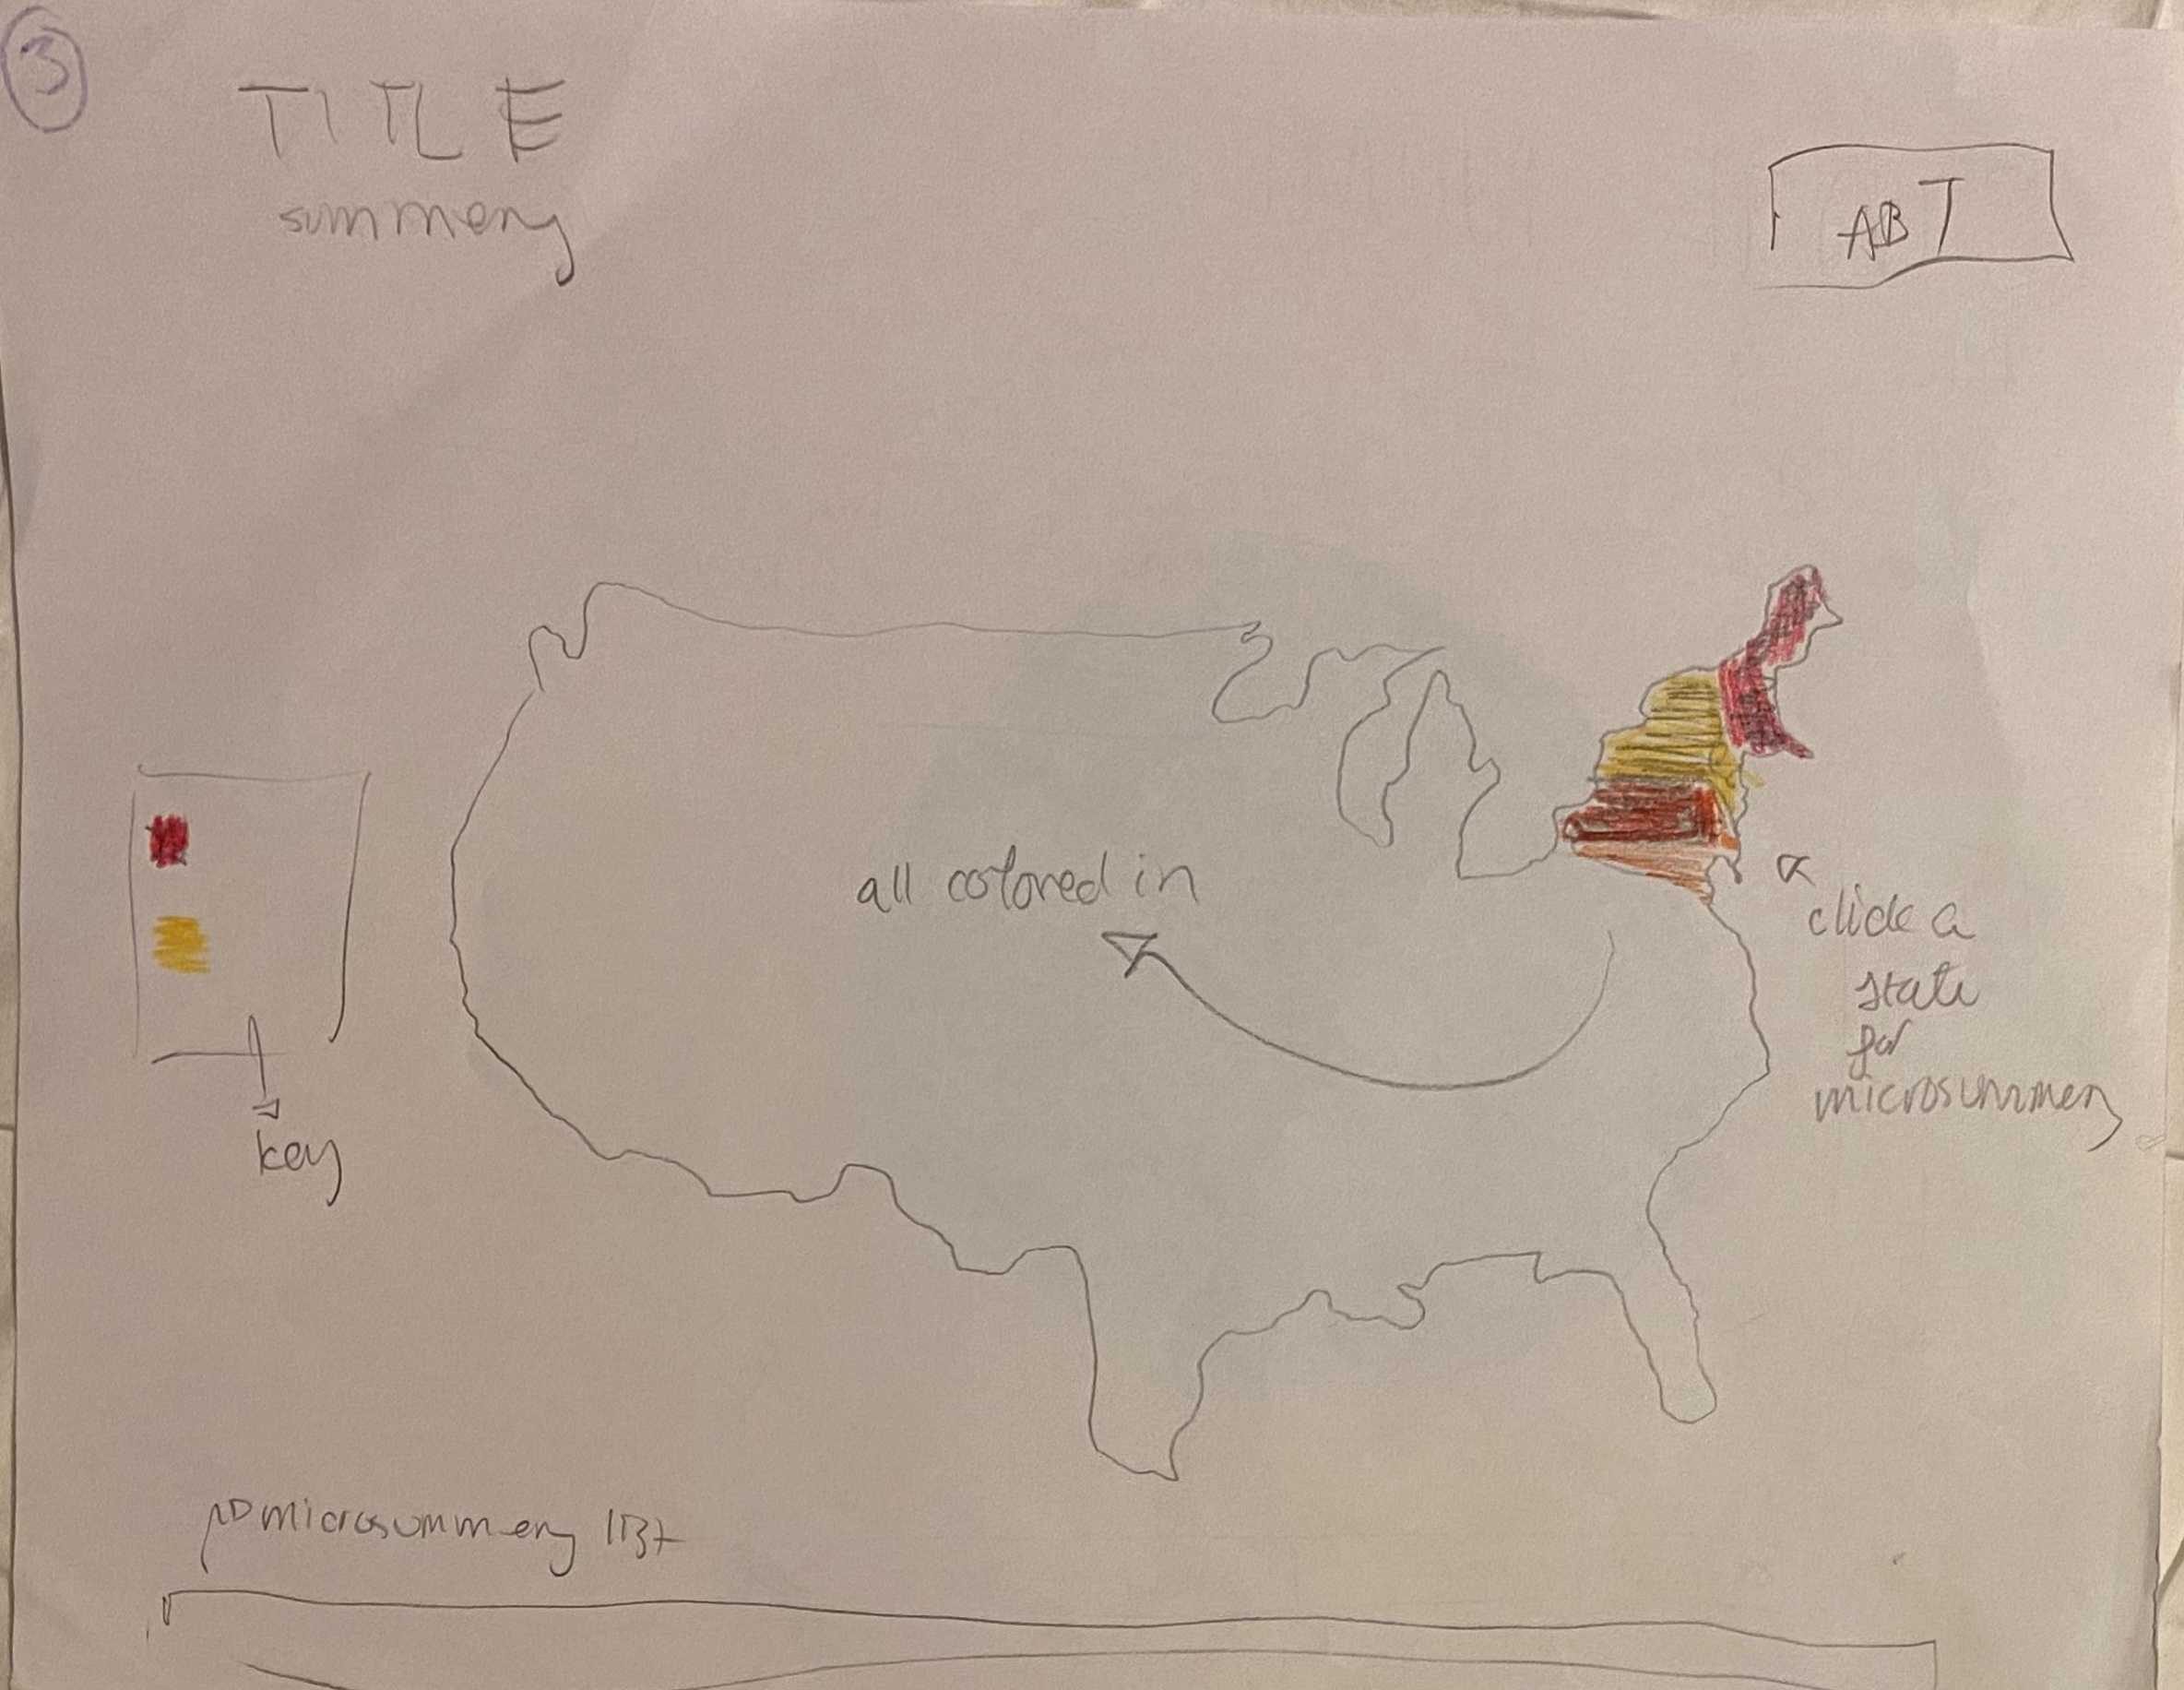 3
TITLE
summery
ABT
all colored in
click a
state
for
microsummery
key
microsummery list